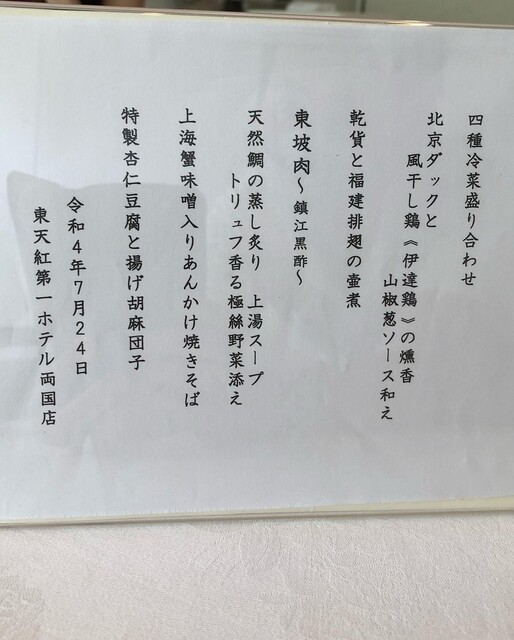 四種冷菜盛り合わせ
北京ダックと
風干し鶏《伊達鶏》の燻香
山椒葱ソース和え
乾貨と福建排翅の壷煮
東坡肉～鎮江黒酢～
天然鯛の蒸し炙り　上湯スープ
トリュフ香る極絲野菜添え
上海蟹味噌入りあんかけ焼きそば
特製杏仁豆腐と揚げ胡麻団子
令和4年7月24日
東天紅第一ホテル両国店